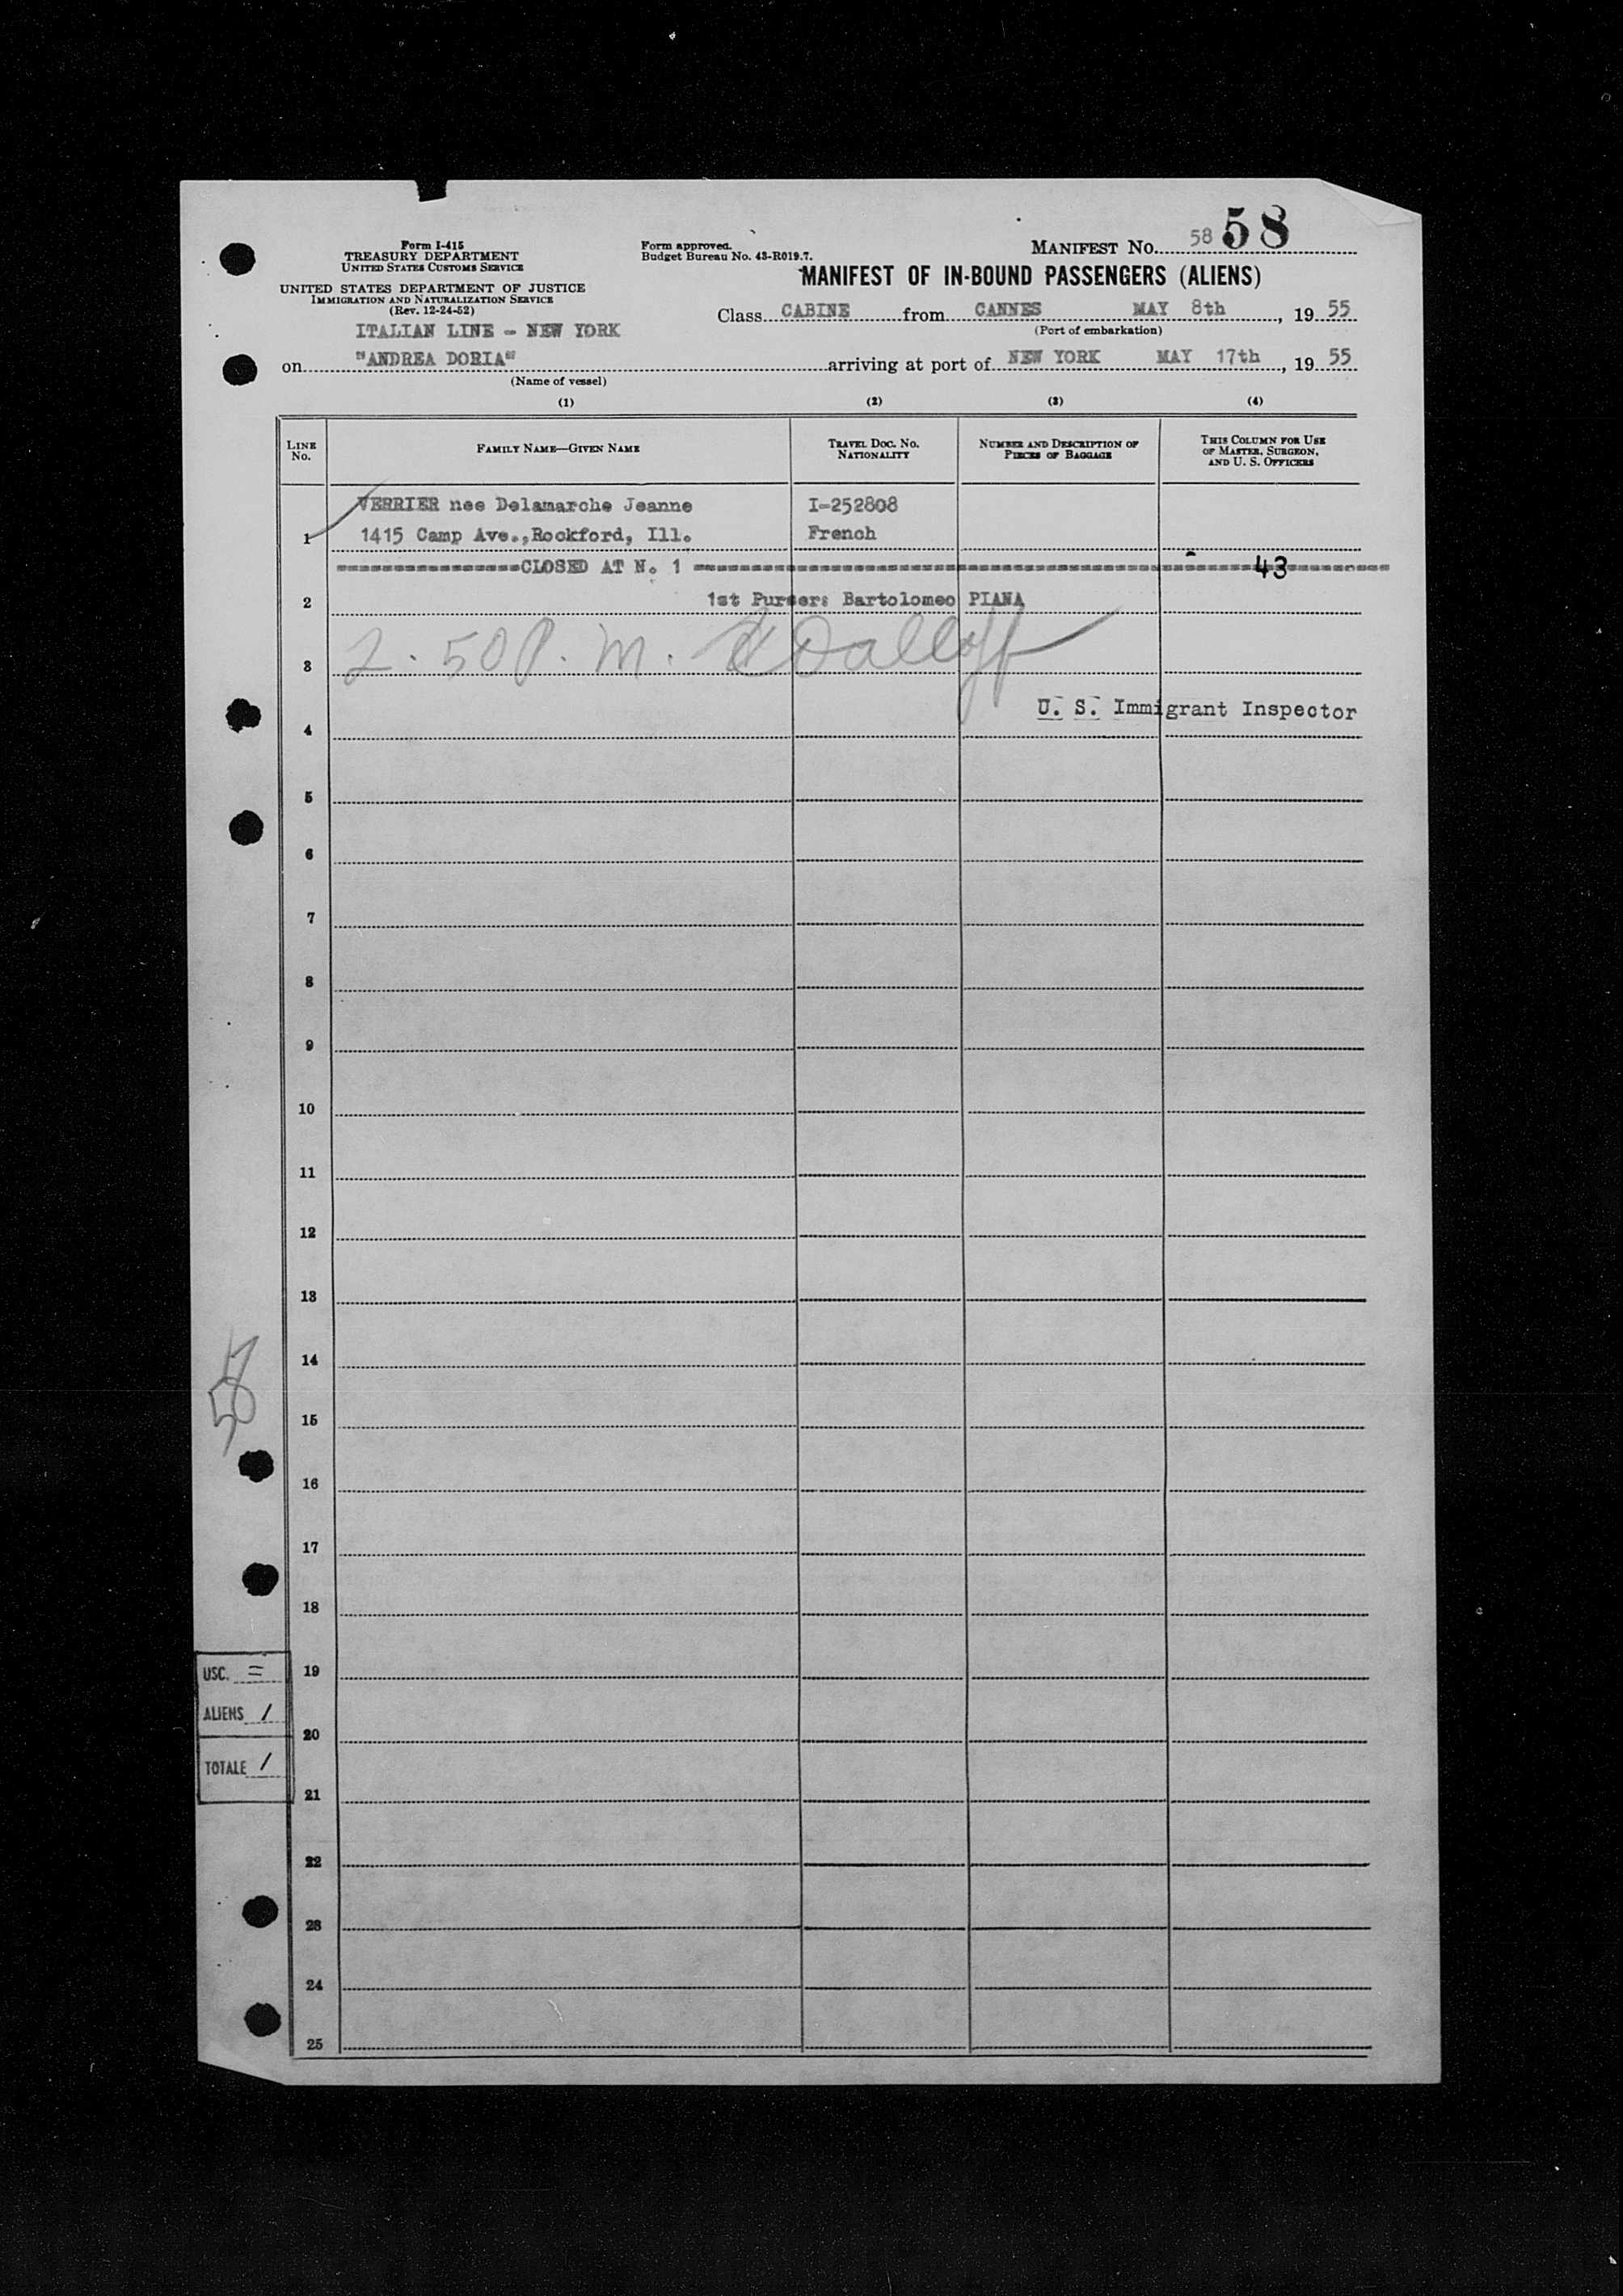 Form I-415
TREASURY DEPARTMENT
UNITED STATES CUSTOMS SERVICE
UNITED STATES DEPARTMENT OF JUSTICE
IMMIGRATION AND NATURALIZATION SERVICE
(Rev. 12-24-52)
ITALIAN LINE - NEW YORK
Form approved.
Budget Bureau No. 43-R019.7.
MANIFEST No. 58 58
MANIFEST OF IN-BOUND PASSENGERS (ALIENS)
Class CABINE from CANNES MAY 8th, 19 55
(Port of embarkation)
on "ANDREA DORIA" arriving at port of NEW YORK MAY 17th, 19 55
(Name of vessel)
(1) (2) (3) (4)
LINE No.
FAMILY NAME—GIVEN NAME
TRAVEL DOC. No.
NATIONALITY
NUMBER AND DESCRIPTION OF
PIECES OF BAGGAGE
THIS COLUMN FOR USE
OF MASTER, SURGEON,
AND U. S. OFFICERS
VERRIER nee Delamarche Jeanne I-252808
1 1415 Camp Ave.,Rockford, Ill. French
CLOSED AT N. 1 43
2 1st Purser: Bartolomeo PIANA
3 2.50 P.M.
U. S. Immigrant Inspector
4
5
6
7
8
9
10
11
12
13
14
15
16
17
18
19
20
21
22
23
24
25
USC. =
ALIENS 1
TOTALE 1